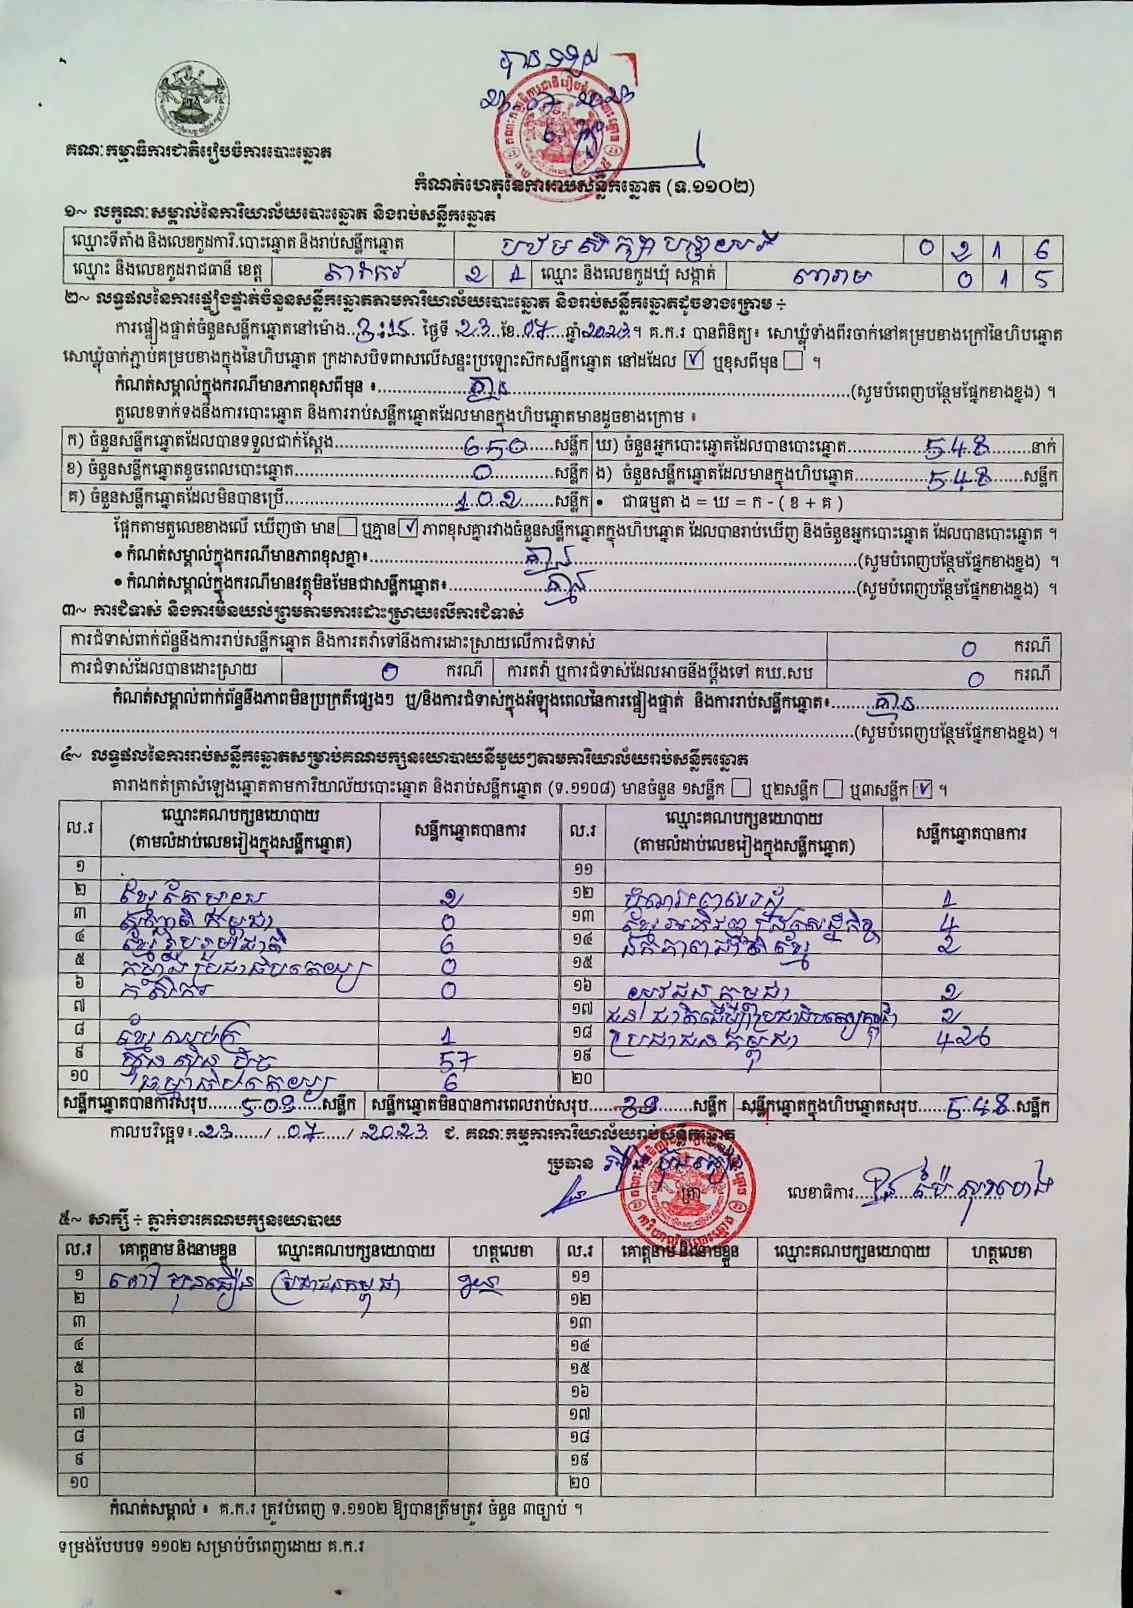 គណៈកម្មាធិការជាតិរៀបចំការបោះឆ្នោត
បានទទួល
កំណត់ហេតុនៃការរាប់សន្លឹកឆ្នោត (ទ.១១០២)
១~ លក្ខណៈសម្គាល់នៃការិយាល័យបោះឆ្នោត និងរាប់សន្លឹកឆ្នោត
ឈ្មោះទីតាំង និងលេខកូដការិ.បោះឆ្នោត និងរាប់សន្លឹកឆ្នោត បឋមសិក្សា 0 2 1 6
ឈ្មោះ និងលេខកូដរាជធានី ខេត្ត តាកែវ 2 1 ឈ្មោះ និងលេខកូដឃុំ សង្កាត់ 0 1 5
២~ លទ្ធផលនៃការផ្ទៀងផ្ទាត់ចំនួនសន្លឹកឆ្នោតតាមការិយាល័យបោះឆ្នោត និងរាប់សន្លឹកឆ្នោតដូចខាងក្រោម ÷
ការផ្ទៀងផ្ទាត់ចំនួនសន្លឹកឆ្នោតនៅម៉ោង..3:15.. ថ្ងៃទី .23.ខែ.07..ឆ្នាំ2023។ គ.ក.រ បានពិនិត្យ៖ សោឃ្លុំទាំងពីរចាក់នៅគម្របខាងក្រៅនៃហិបឆ្នោត
សោឃ្លុំចាក់ភ្ជាប់គម្របខាងក្នុងនៃហិបឆ្នោត ក្រដាសបិទពាសលើសន្ទះប្រឡោះស៊កសន្លឹកឆ្នោត នៅដដែល ☑ ឬខុសពីមុន ☐ ។
កំណត់សម្គាល់ក្នុងករណីមានភាពខុសពីមុន ៖ គ្មាន (សូមបំពេញបន្ថែមផ្នែកខាងខ្នង) ។
តួលេខទាក់ទងនឹងការបោះឆ្នោត និងការរាប់សន្លឹកឆ្នោតដែលមានក្នុងហិបឆ្នោតមានដូចខាងក្រោម ៖
ក) ចំនួនសន្លឹកឆ្នោតដែលបានទទួលជាក់ស្តែង 650 សន្លឹក ឃ) ចំនួនអ្នកបោះឆ្នោតដែលបានបោះឆ្នោត 548 នាក់
ខ) ចំនួនសន្លឹកឆ្នោតខូចពេលបោះឆ្នោត 0 សន្លឹក ង) ចំនួនសន្លឹកឆ្នោតដែលមានក្នុងហិបឆ្នោត 548 សន្លឹក
គ) ចំនួនសន្លឹកឆ្នោតដែលមិនបានប្រើ 102 សន្លឹក • ជាធម្មតា ង = ឃ = ក - ( ខ + គ )
ផ្អែកតាមតួលេខខាងលើ ឃើញថា មាន ☐ ឬគ្មាន ☑ ភាពខុសគ្នារវាងចំនួនសន្លឹកឆ្នោតក្នុងហិបឆ្នោត ដែលបានរាប់ឃើញ និងចំនួនអ្នកបោះឆ្នោត ដែលបានបោះឆ្នោត ។
• កំណត់សម្គាល់ក្នុងករណីមានភាពខុសគ្នា៖ គ្មាន (សូមបំពេញបន្ថែមផ្នែកខាងខ្នង) ។
• កំណត់សម្គាល់ក្នុងករណីមានវត្ថុមិនមែនជាសន្លឹកឆ្នោត៖ គ្មាន (សូមបំពេញបន្ថែមផ្នែកខាងខ្នង) ។
៣~ ការជំទាស់ និងការមិនយល់ព្រមតាមការដោះស្រាយលើការជំទាស់
ការជំទាស់ពាក់ព័ន្ធនឹងការរាប់សន្លឹកឆ្នោត និងការតវ៉ាទៅនឹងការដោះស្រាយលើការជំទាស់ 0 ករណី
ការជំទាស់ដែលបានដោះស្រាយ 0 ករណី ការតវ៉ា ឬការជំទាស់ដែលអាចនឹងប្តឹងទៅ គឃ.សប 0 ករណី
កំណត់សម្គាល់ពាក់ព័ន្ធនឹងភាពមិនប្រក្រតីផ្សេងៗ ឬ/និងការជំទាស់ក្នុងអំឡុងពេលនៃការផ្ទៀងផ្ទាត់ និងការរាប់សន្លឹកឆ្នោត៖ គ្មាន
(សូមបំពេញបន្ថែមផ្នែកខាងខ្នង) ។
៤~ លទ្ធផលនៃការរាប់សន្លឹកឆ្នោតសម្រាប់គណបក្សនយោបាយនីមួយៗតាមការិយាល័យរាប់សន្លឹកឆ្នោត
តារាងកត់ត្រាសំឡេងឆ្នោតតាមការិយាល័យបោះឆ្នោត និងរាប់សន្លឹកឆ្នោត (ទ.១១០៨) មានចំនួន ១សន្លឹក ☐ ឬ២សន្លឹក ☐ ឬ៣សន្លឹក ☑ ។
ល.រ ឈ្មោះគណបក្សនយោបាយ (តាមលំដាប់លេខរៀងក្នុងសន្លឹកឆ្នោត) សន្លឹកឆ្នោតបានការ ល.រ ឈ្មោះគណបក្សនយោបាយ (តាមលំដាប់លេខរៀងក្នុងសន្លឹកឆ្នោត) សន្លឹកឆ្នោតបានការ
១ ១១
២ ខ្មែរតែមួយ 2 ១២ 1
៣ កម្ពុជា 0 ១៣ ខ្មែរអភិវឌ្ឍន៍សេដ្ឋកិច្ច 4
៤ ខ្មែររួបរួមជាតិ 6 ១៤ ឯកភាពជាតិខ្មែរ 2
៥ កម្លាំងប្រជាធិបតេយ្យ 0 ១៥
៦ កសិករ 0 ១៦ យុវជនកម្ពុជា 2
៧ ១៧ ជនជាតិដើមប្រជាធិបតេយ្យកម្ពុជា 2
៨ ខ្មែរ 1 ១៨ ប្រជាជនកម្ពុជា 426
៩ ហ៊្វុនស៊ិនប៉ិច 57 ១៩
១០ ធម្មាធិបតេយ្យ 6 ២០
សន្លឹកឆ្នោតបានការសរុប 509 សន្លឹក សន្លឹកឆ្នោតមិនបានការពេលរាប់សរុប 39 សន្លឹក សន្លឹកឆ្នោតក្នុងហិបឆ្នោតសរុប 548 សន្លឹក
កាលបរិច្ឆេទ៖ 23 / 07 / 2023 ជ. គណៈកម្មការការិយាល័យរាប់សន្លឹកឆ្នោត
ប្រធាន
ត្រា
លេខាធិការ
៥~ សាក្សី ÷ ភ្នាក់ងារគណបក្សនយោបាយ
ល.រ គោត្តនាម និងនាមខ្លួន ឈ្មោះគណបក្សនយោបាយ ហត្ថលេខា ល.រ គោត្តនាម និងនាមខ្លួន ឈ្មោះគណបក្សនយោបាយ ហត្ថលេខា
១ ប្រជាជនកម្ពុជា ១១
២ ១២
៣ ១៣
៤ ១៤
៥ ១៥
៦ ១៦
៧ ១៧
៨ ១៨
៩ ១៩
១០ ២០
កំណត់សម្គាល់ ៖ គ.ក.រ ត្រូវបំពេញ ទ.១១០២ ឱ្យបានត្រឹមត្រូវ ចំនួន ៣ច្បាប់ ។
ទម្រង់បែបបទ ១១០២ សម្រាប់បំពេញដោយ គ.ក.រ